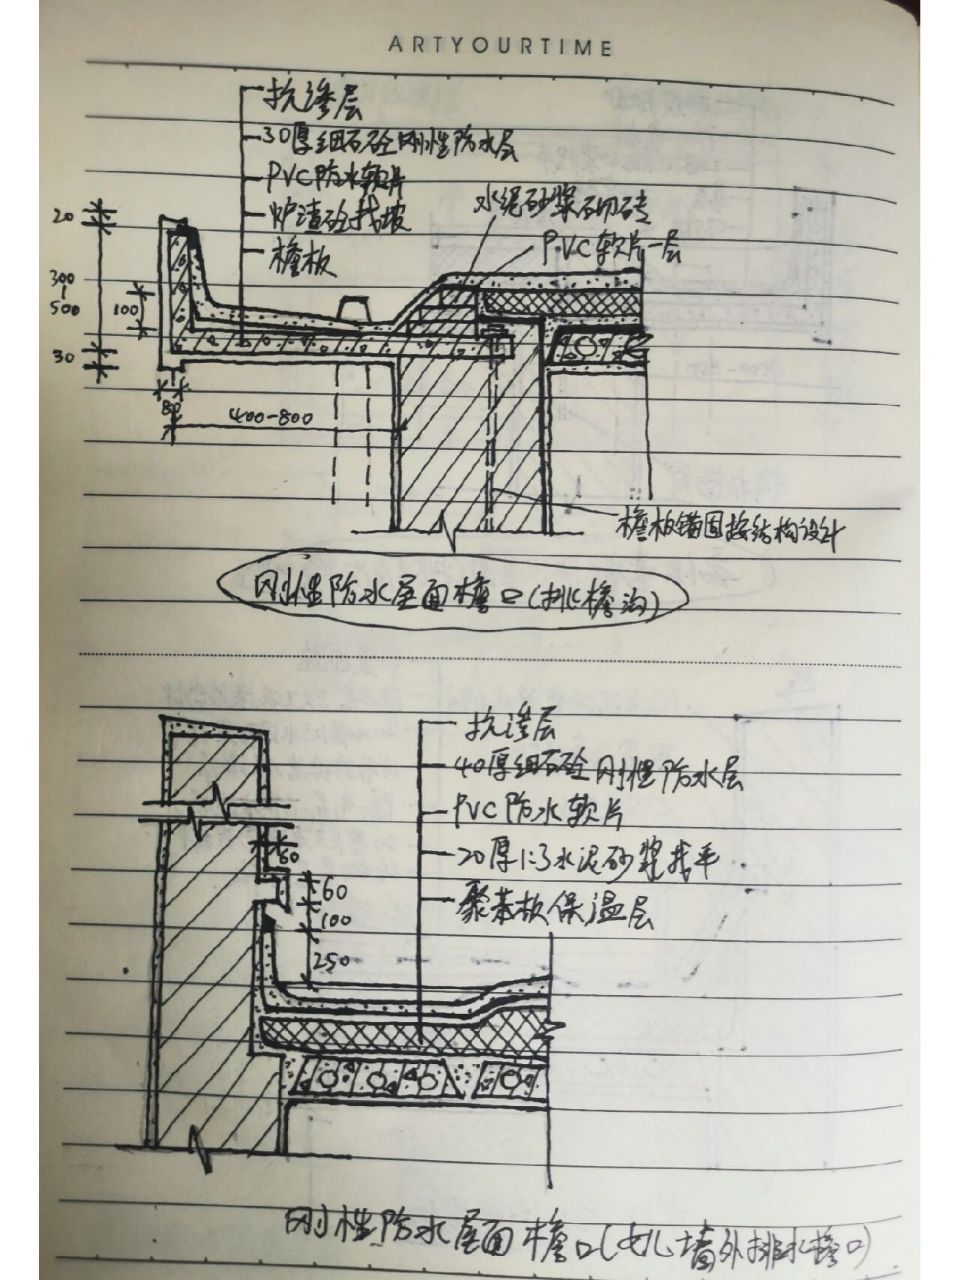 ARTYOURTIME
抗渗层
30厚细石砼刚性防水层
PVC防水软片
炉渣砼找坡
檐板
水泥砂浆砌砖
PVC软片一层
20
300
|
500
100
30
80
400-800
檐板锚固按结构设计
刚性防水屋面檐口(挑檐沟)
抗渗层
40厚细石砼刚性防水层
PVC防水软片
20厚1:3水泥砂浆找平
聚苯板保温层
60
60
100
250
刚性防水屋面檐口(女儿墙外排水檐口)